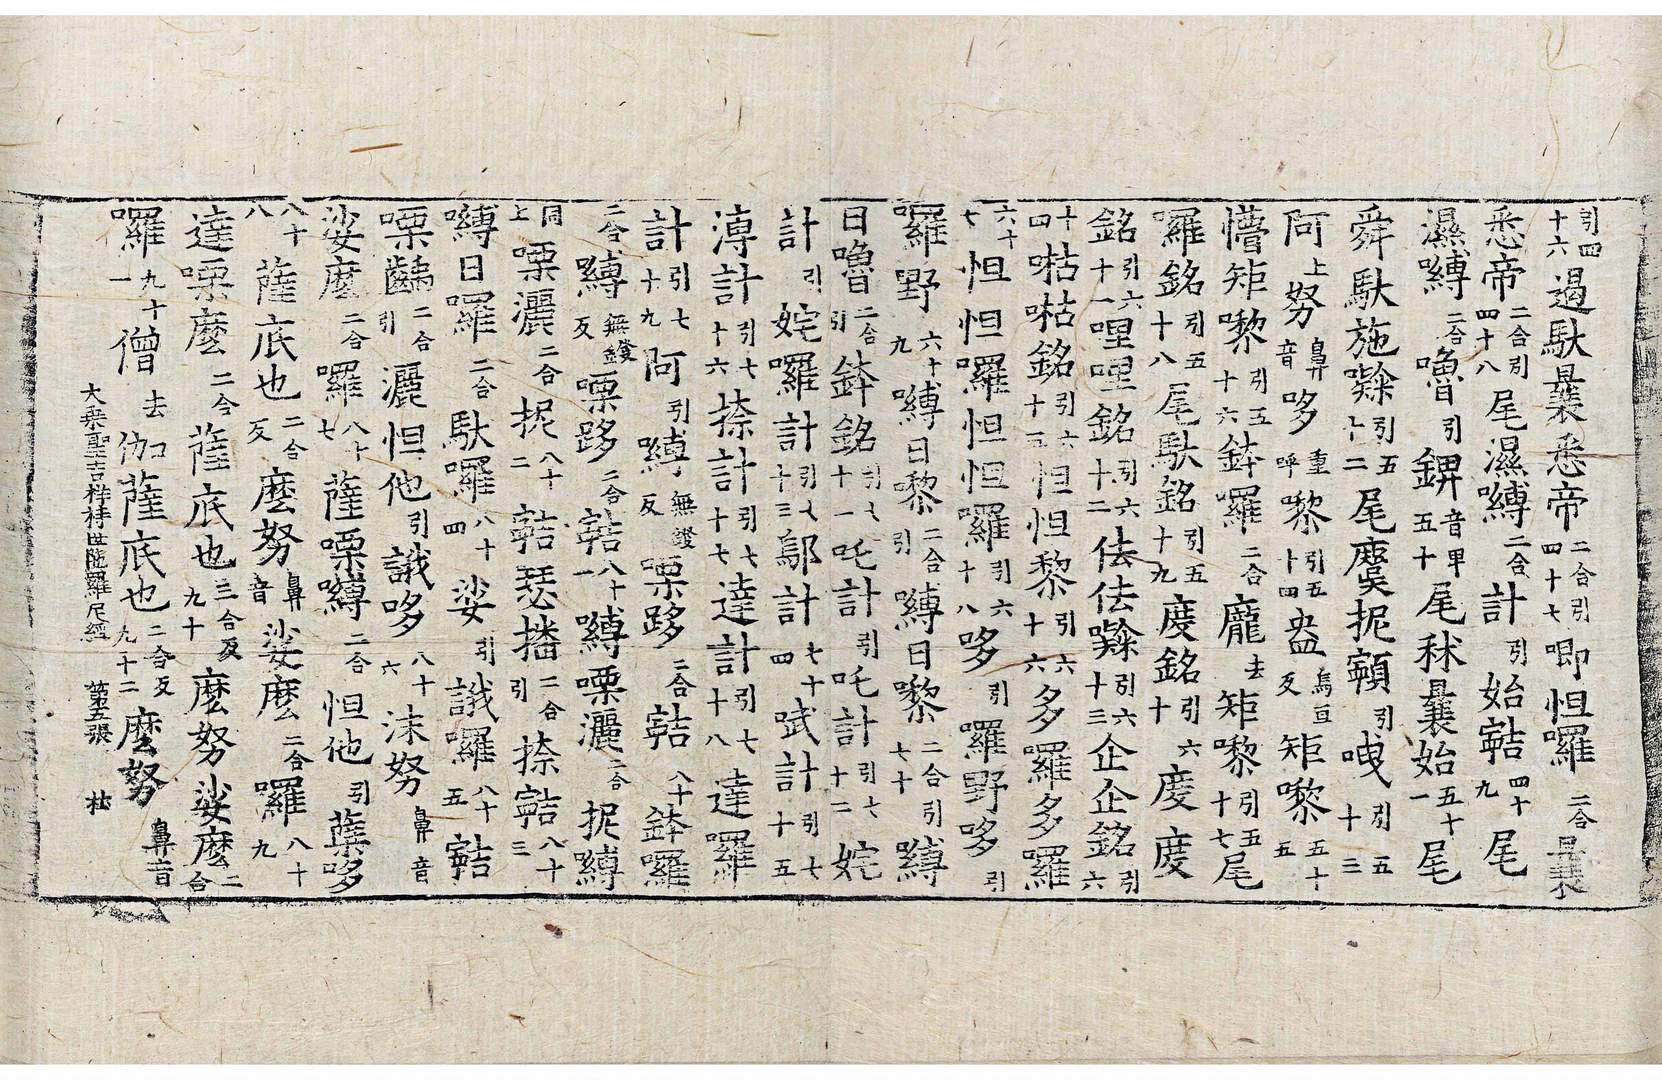 引四十六遏馱曩悉帝二合引四十七唧怛囉二合曩
悉帝二合引四十八尾濕嚩二合計引始鞊四十九尾
濕嚩二合嚕引鎞音畢五十尾秫曩始五十一尾
舜馱施㘑引五十二尾虞抳頞引𠺁引五十三
阿上努鼻音哆重呼嚟引五十四盎烏亘反矩嚟五十五
懵矩嚟引五十六鉢囉二合龐去矩嚟引五十七尾
囉銘引五十八尾馱銘引五十九度銘引六十度度
銘引六十一哩哩銘引六十二佉佉㘑引六十三企企銘引六
十四㗝㗝銘引六十五怛怛黎引六十六多囉多囉
六十七怛怛囉怛怛囉引六十八哆引囉野哆引
囉野六十九嚩日嚟二合引嚩日嚟二合引七十嚩
日嚕二合引鉢銘引七十一吒計引吒計引七十二姹
計引姹囉計引七十三鄔計七十四吠計引七十五
漙計引七十六捺計引七十七達計引七十八達囉
計引七十九阿引嚩無鍐反㗚跢二合鞊八十鉢囉
二合嚩無鍐反㗚跢二合鞊八十一嚩㗚灑二合抳嚩
同上㗚灑二合抳八十二鞊瑟播二合引捺鞊八十三
嚩日囉二合馱囉八十四娑引誐囉八十五鞊
㗚齲二合引灑怛他引誐哆八十六沫努鼻音
娑麽二合囉八十七薩㗚嚩二合怛他引蘖哆
八十八薩底也二合反麽努鼻音娑麽二合囉八十九
達㗚麽二合薩底也三合反九十麽努娑麽二合
囉九十一僧去伽薩底也二合反九十二麽努鼻音
大乘聖吉祥持世陁羅尼經 第五張 杜